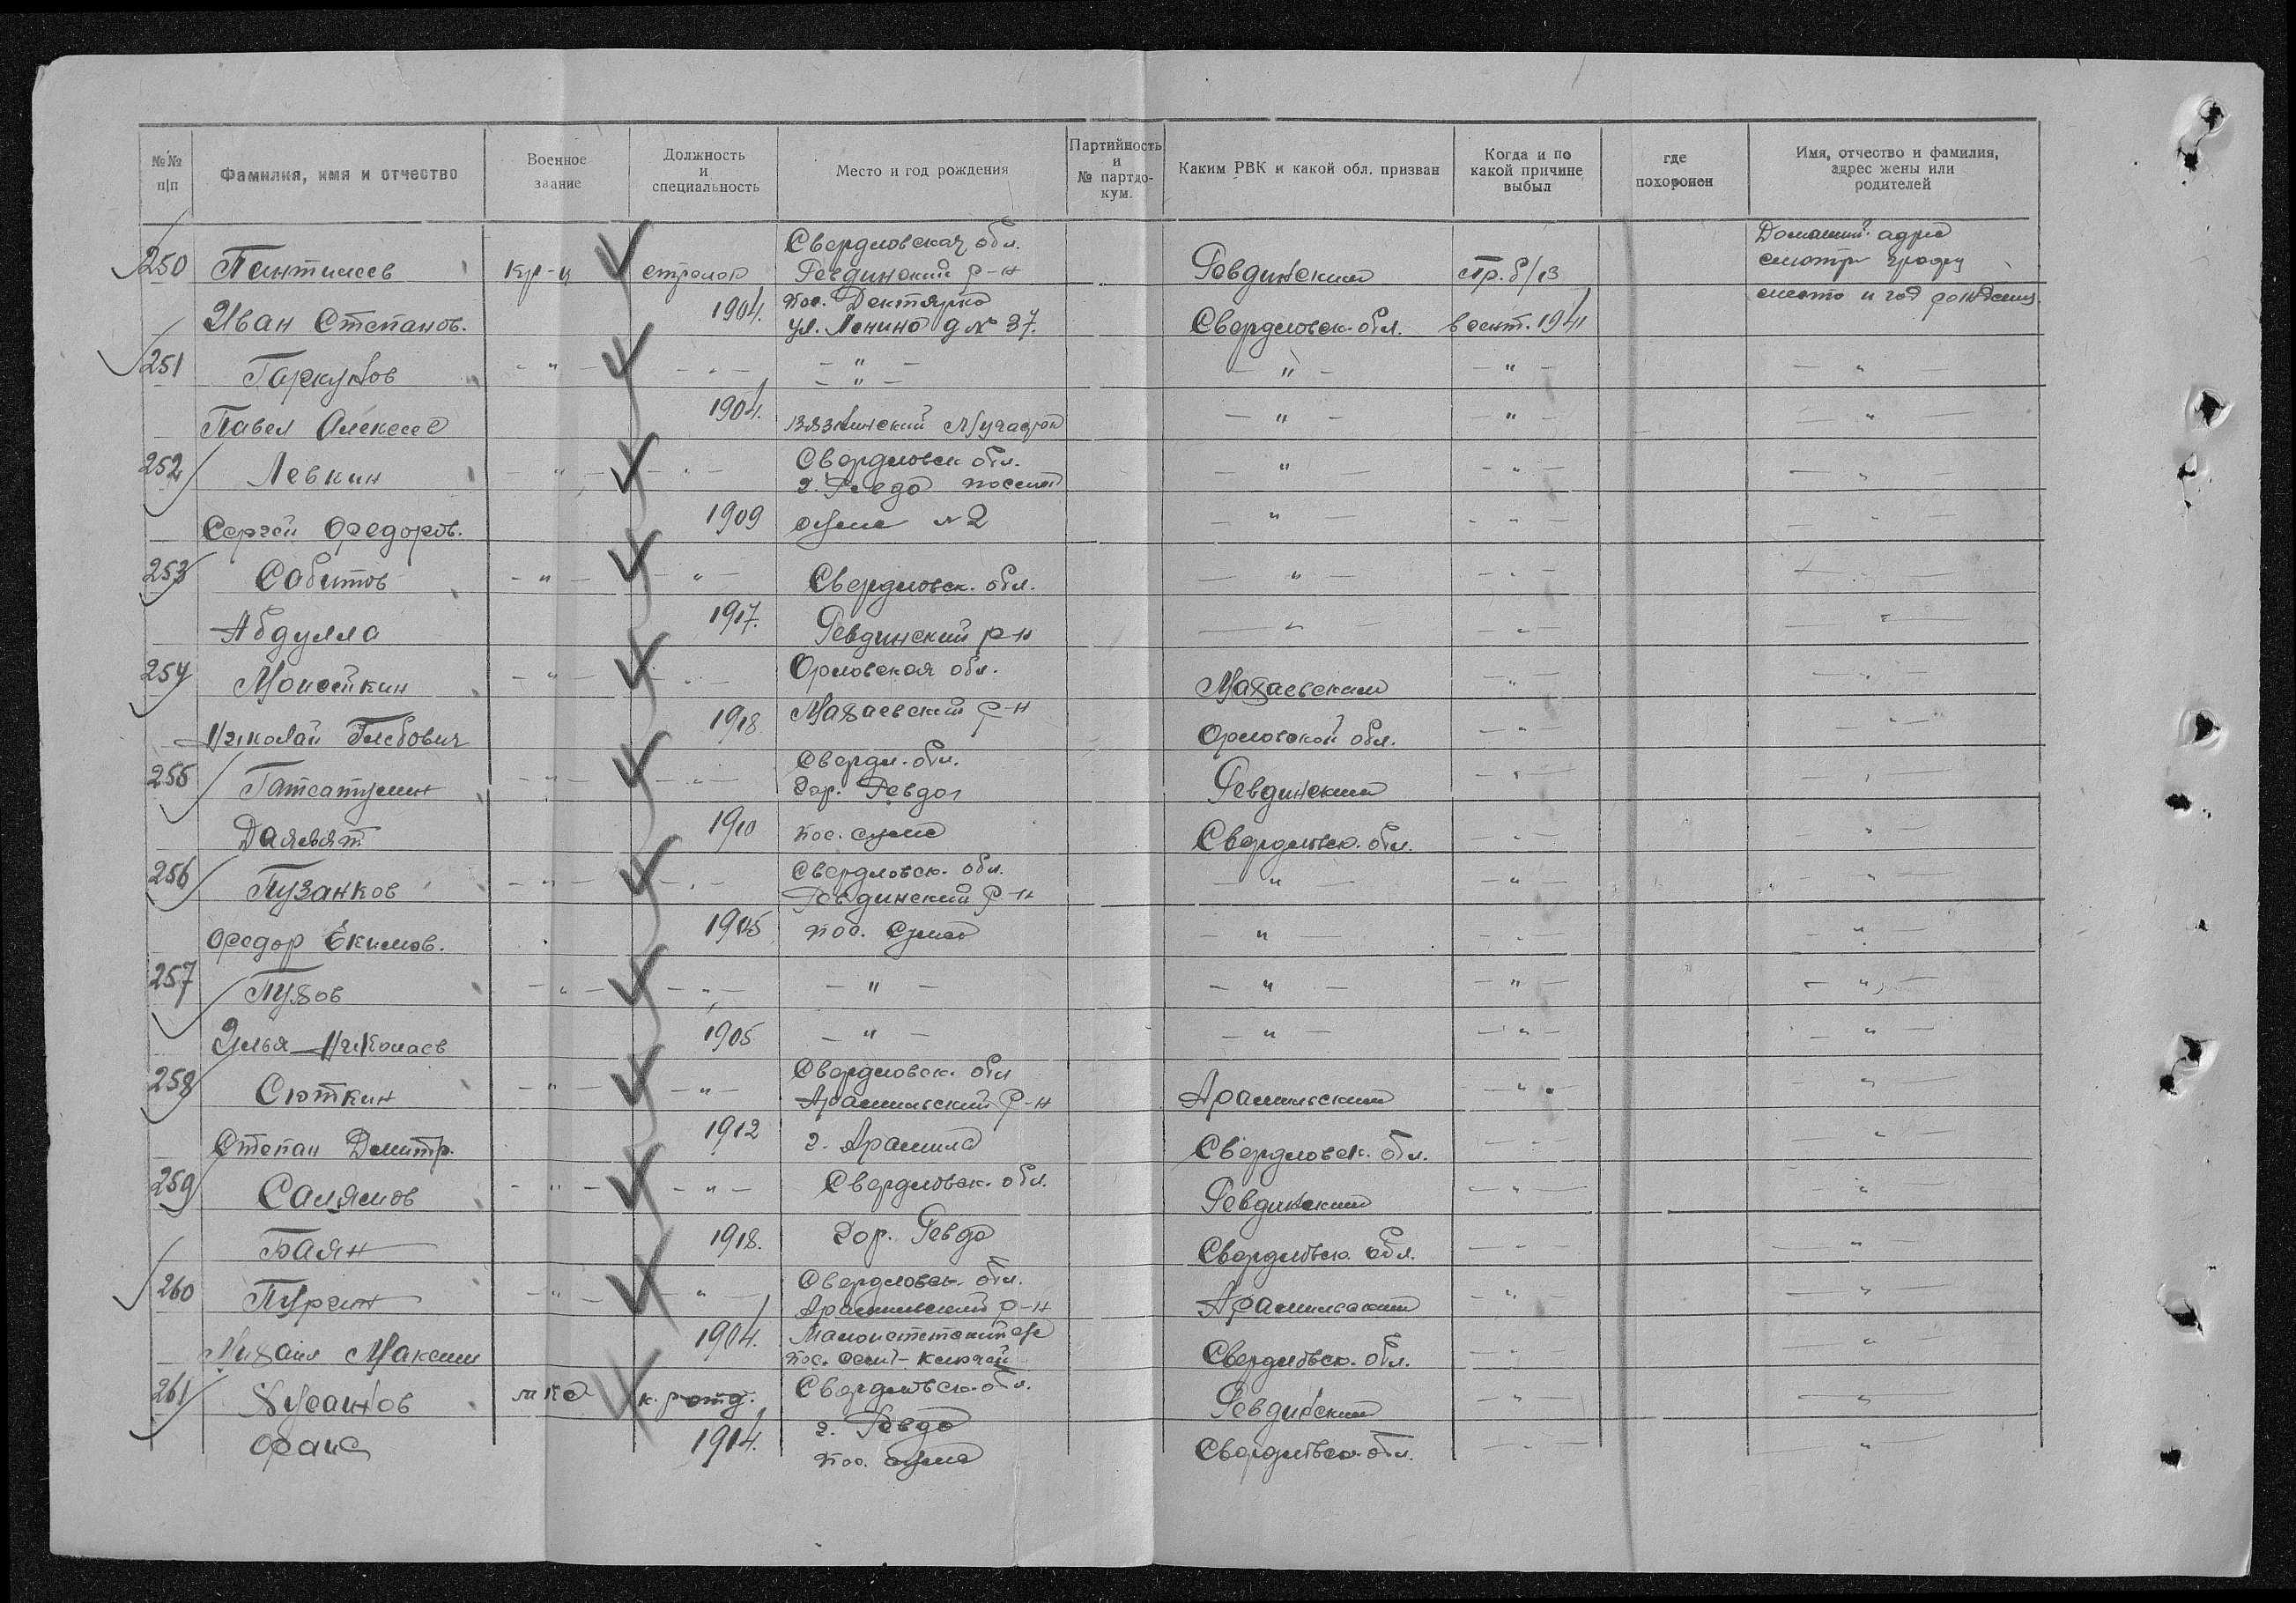 №№ п/п
Фамилия, имя и отчество
Военное звание
Должность и специальность
Место и год рождения
Партийность и № партдокум.
Каким РВК и какой обл. призван
Когда и по какой причине выбыл
где похоронен
Имя, отчество и фамилия, адрес жены или родителей
250 Пантилеев кр-ц стрелок Свердловская обл. Ревдинский р-н Ревдинский пр. б/в Домашний адрес смотри графу
Иван Степанов. 1904. пос. Дектярка ул. Ленина д № 37. Свердловск. обл. в сент. 1941 место и год рождения.
251 Гаркунов - " - - " - - " - - " - - " - - " - - " -
Павел Алексеев 1904. - " - - " - - " -
252 Левкин - " - - " - Свердловск обл. г. Ревда поселок - " - - " - - " -
Сергей Федоров. 1909 сумз № 2 - " - - " - - " -
253 Сабитов - " - - " - Свердловск. обл. - " - - " - - " -
Абдулла 1917. Ревдинский р-н - " - - " - - " -
254 Моисейкин - " - - " - Орловская обл. - " - - " -
Николай Глебович 1918 р-н Орловской обл. - " - - " -
255 - " - - " - Свердл. обл. гор. Ревда Ревдинский - " - - " -
1910 пос. сумз Свердловск. обл. - " - - " -
256 Пузанков - " - - " - Свердловск. обл. Ревдинский р-н - " - - " - - " -
Федор Екимов. 1905 пос. Сумз - " - - " - - " -
257 - " - - " - - " - - " - - " - - " -
Илья Николаев 1905 - " - - " - - " - - " -
258 Сюткин - " - - " - Свердловск. обл Арамильский р-н Арамильский - " - - " -
Степан Дмитр. 1912 г. Арамиль Свердловск. обл. - " - - " -
259 Салямов - " - - " - Свердловск. обл. Ревдинский - " - - " -
Баян 1918. Гор. Ревда Свердловск. обл. - " - - " -
260 Пургин - " - - " - Свердловск. обл. Арамильский р-н Арамильский - " - - " -
Михаил Максим 1904. пос. Свердловск. обл. - " - - " -
261 Хусаинов мкд к. отд. Свердловск. обл. Ревдинский - " - - " -
Фаис 1914. г. Ревда пос. сумз Свердловск. обл. - " - - " -